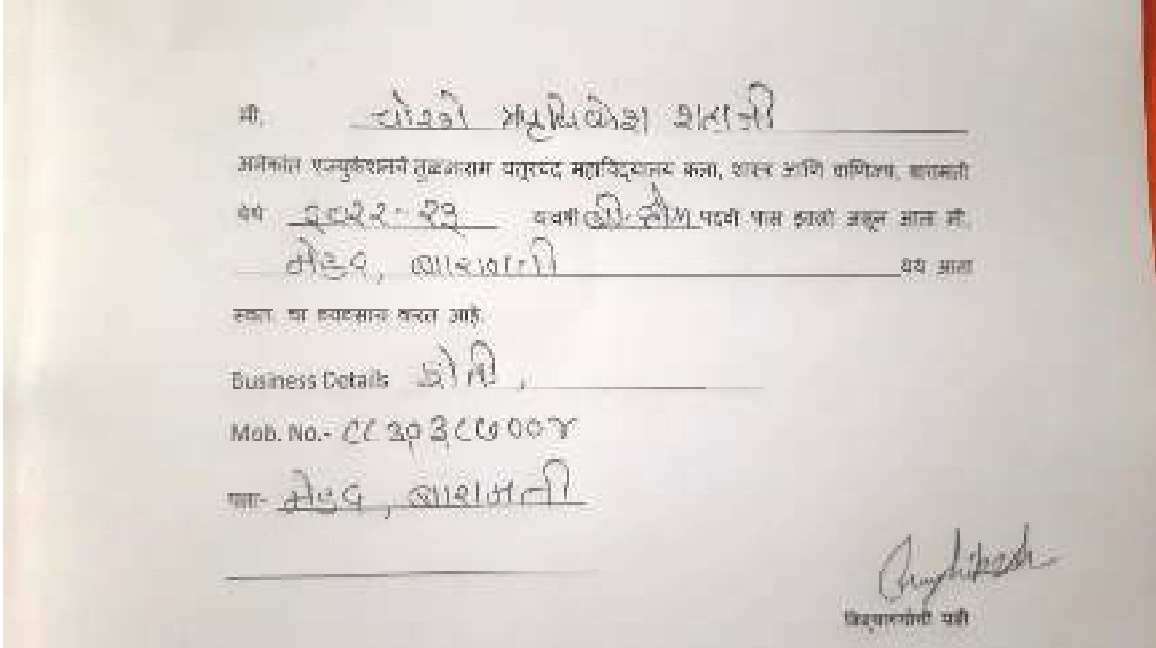 मी, चोरगे ऋषिकेश शहाजी
अनेकांत एज्युकेशनचे तुळजाराम चतुरचंद महाविद्यालय कला, शास्त्र आणि वाणिज्य, बारामती
येथे २०२२-२३ या वर्षी बी.कॉम पदवी पास झालो असून आता मी,
मेडद, बारामती येथे आता
स्वतः चा व्यवसाय करत आहे.
Business Details शेती,
Mob. No.-
पत्ता- मेडद, बारामती
Rushikesh
विद्यार्थ्याची सही